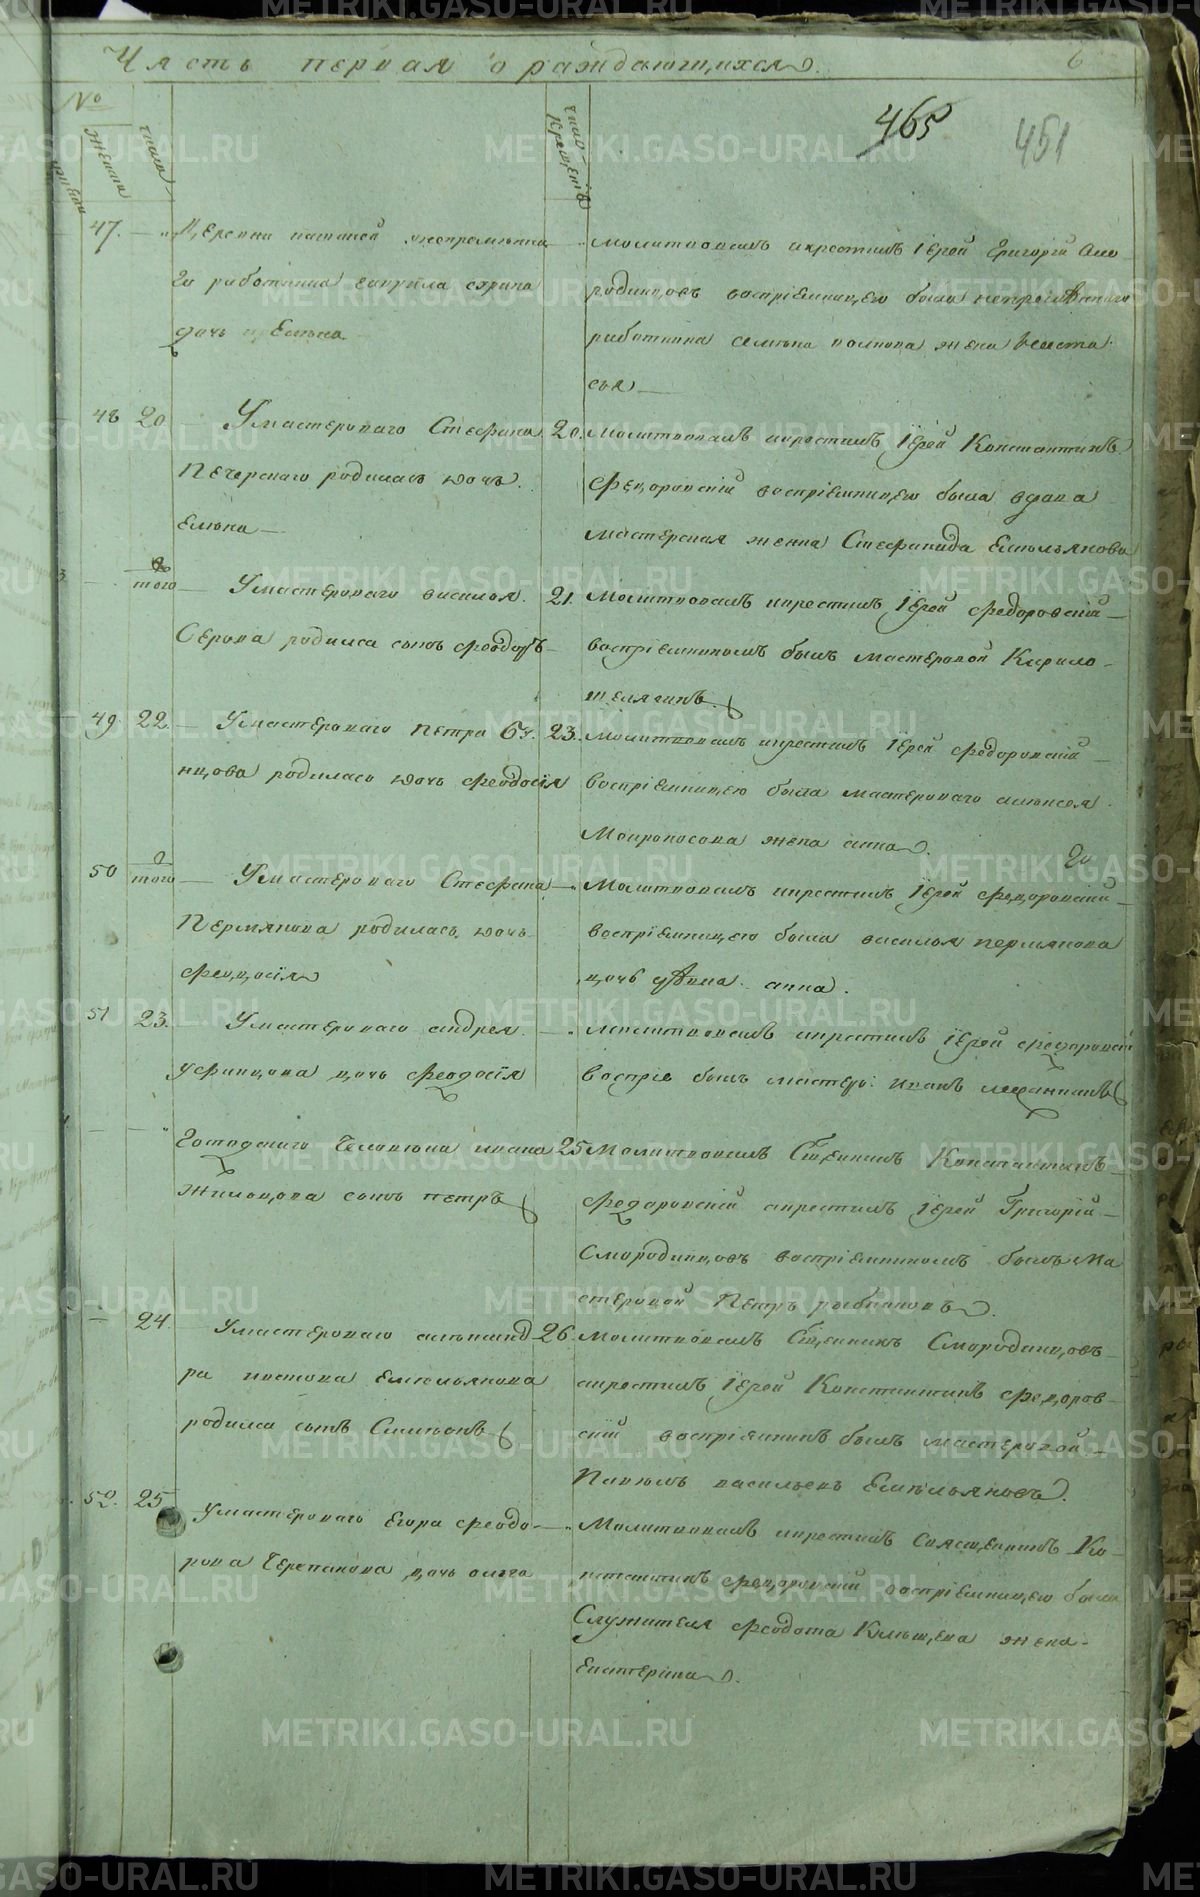 Часть первая о раждающихся
6
№
465
451
женска
число
число
крещенїя
47. Деревни
го работника скрипа
дочь Елена
молитвовалъ и крестилъ Їерей Григорїй Смо
родинцовъ воспрїемницею была непремѣннаго
работника Семена жена Анаста
сья
48 20 Умастероваго Стефана
Печерскаго родилась дочь
Елена
20. Молитвовалъ и крестилъ Їерей Константинъ
Федоровскїй воспрїемницею была вдова
мастерская женка Стефанида Емельянова
того Умастероваго василья
Серова родился сынъ Феодоръ
21. Молитвовалъ и крестилъ Їерей Федоровскїй
воспрїемникомъ былъ мастеровой Кирило
49. 22. Умастероваго Петра
нцова родилась дочь Феодосїя
23. Молитвовалъ и крестилъ Їерей Федоровскїй
воспрїемницею была мастероваго алексея
Мокроносова жена анна
50 того Умастероваго Стефана
Пермякова родилась дочь
Феодосїя
Молитвовалъ и крестилъ Їерей Федоровскїй
воспрїемницею была василья пермякова
дочь анна.
51 23. Умастероваго андрея
Уфинцова дочь Феодосїя
молитвовалъ и крестилъ Їерей Федоровскїй
воспрїе былъ мастеро: иванъ
Господскаго человека ивана
Жилоцова сынъ петръ
25 Молитвовалъ Сщенникъ Константинъ
Федоровскїй а крестилъ Їерей Григорїй
Смородинцовъ воспрїемникомъ былъ Ма
стеровой Петръ рыбниковъ.
24. Умастероваго александ
ра Емельянова
родился сынъ Симеонъ
26. Молитвовалъ Сщенникъ Смородинцовъ
а крестилъ Їерей Константинъ Федоров
скїй воспрїемникъ былъ мастеровой
Павелъ васильевъ Емельяновъ.
52. 25 Умастероваго Егора Феодо
рова Черепанова дочь олга
Молитвовалъ и крестилъ Священникъ Ко
нстантинъ Федоровскїй воспрїемницею была
Служителя Феодота Клещева жена
Екатерина.
METRIKI.GASO-URAL.RU